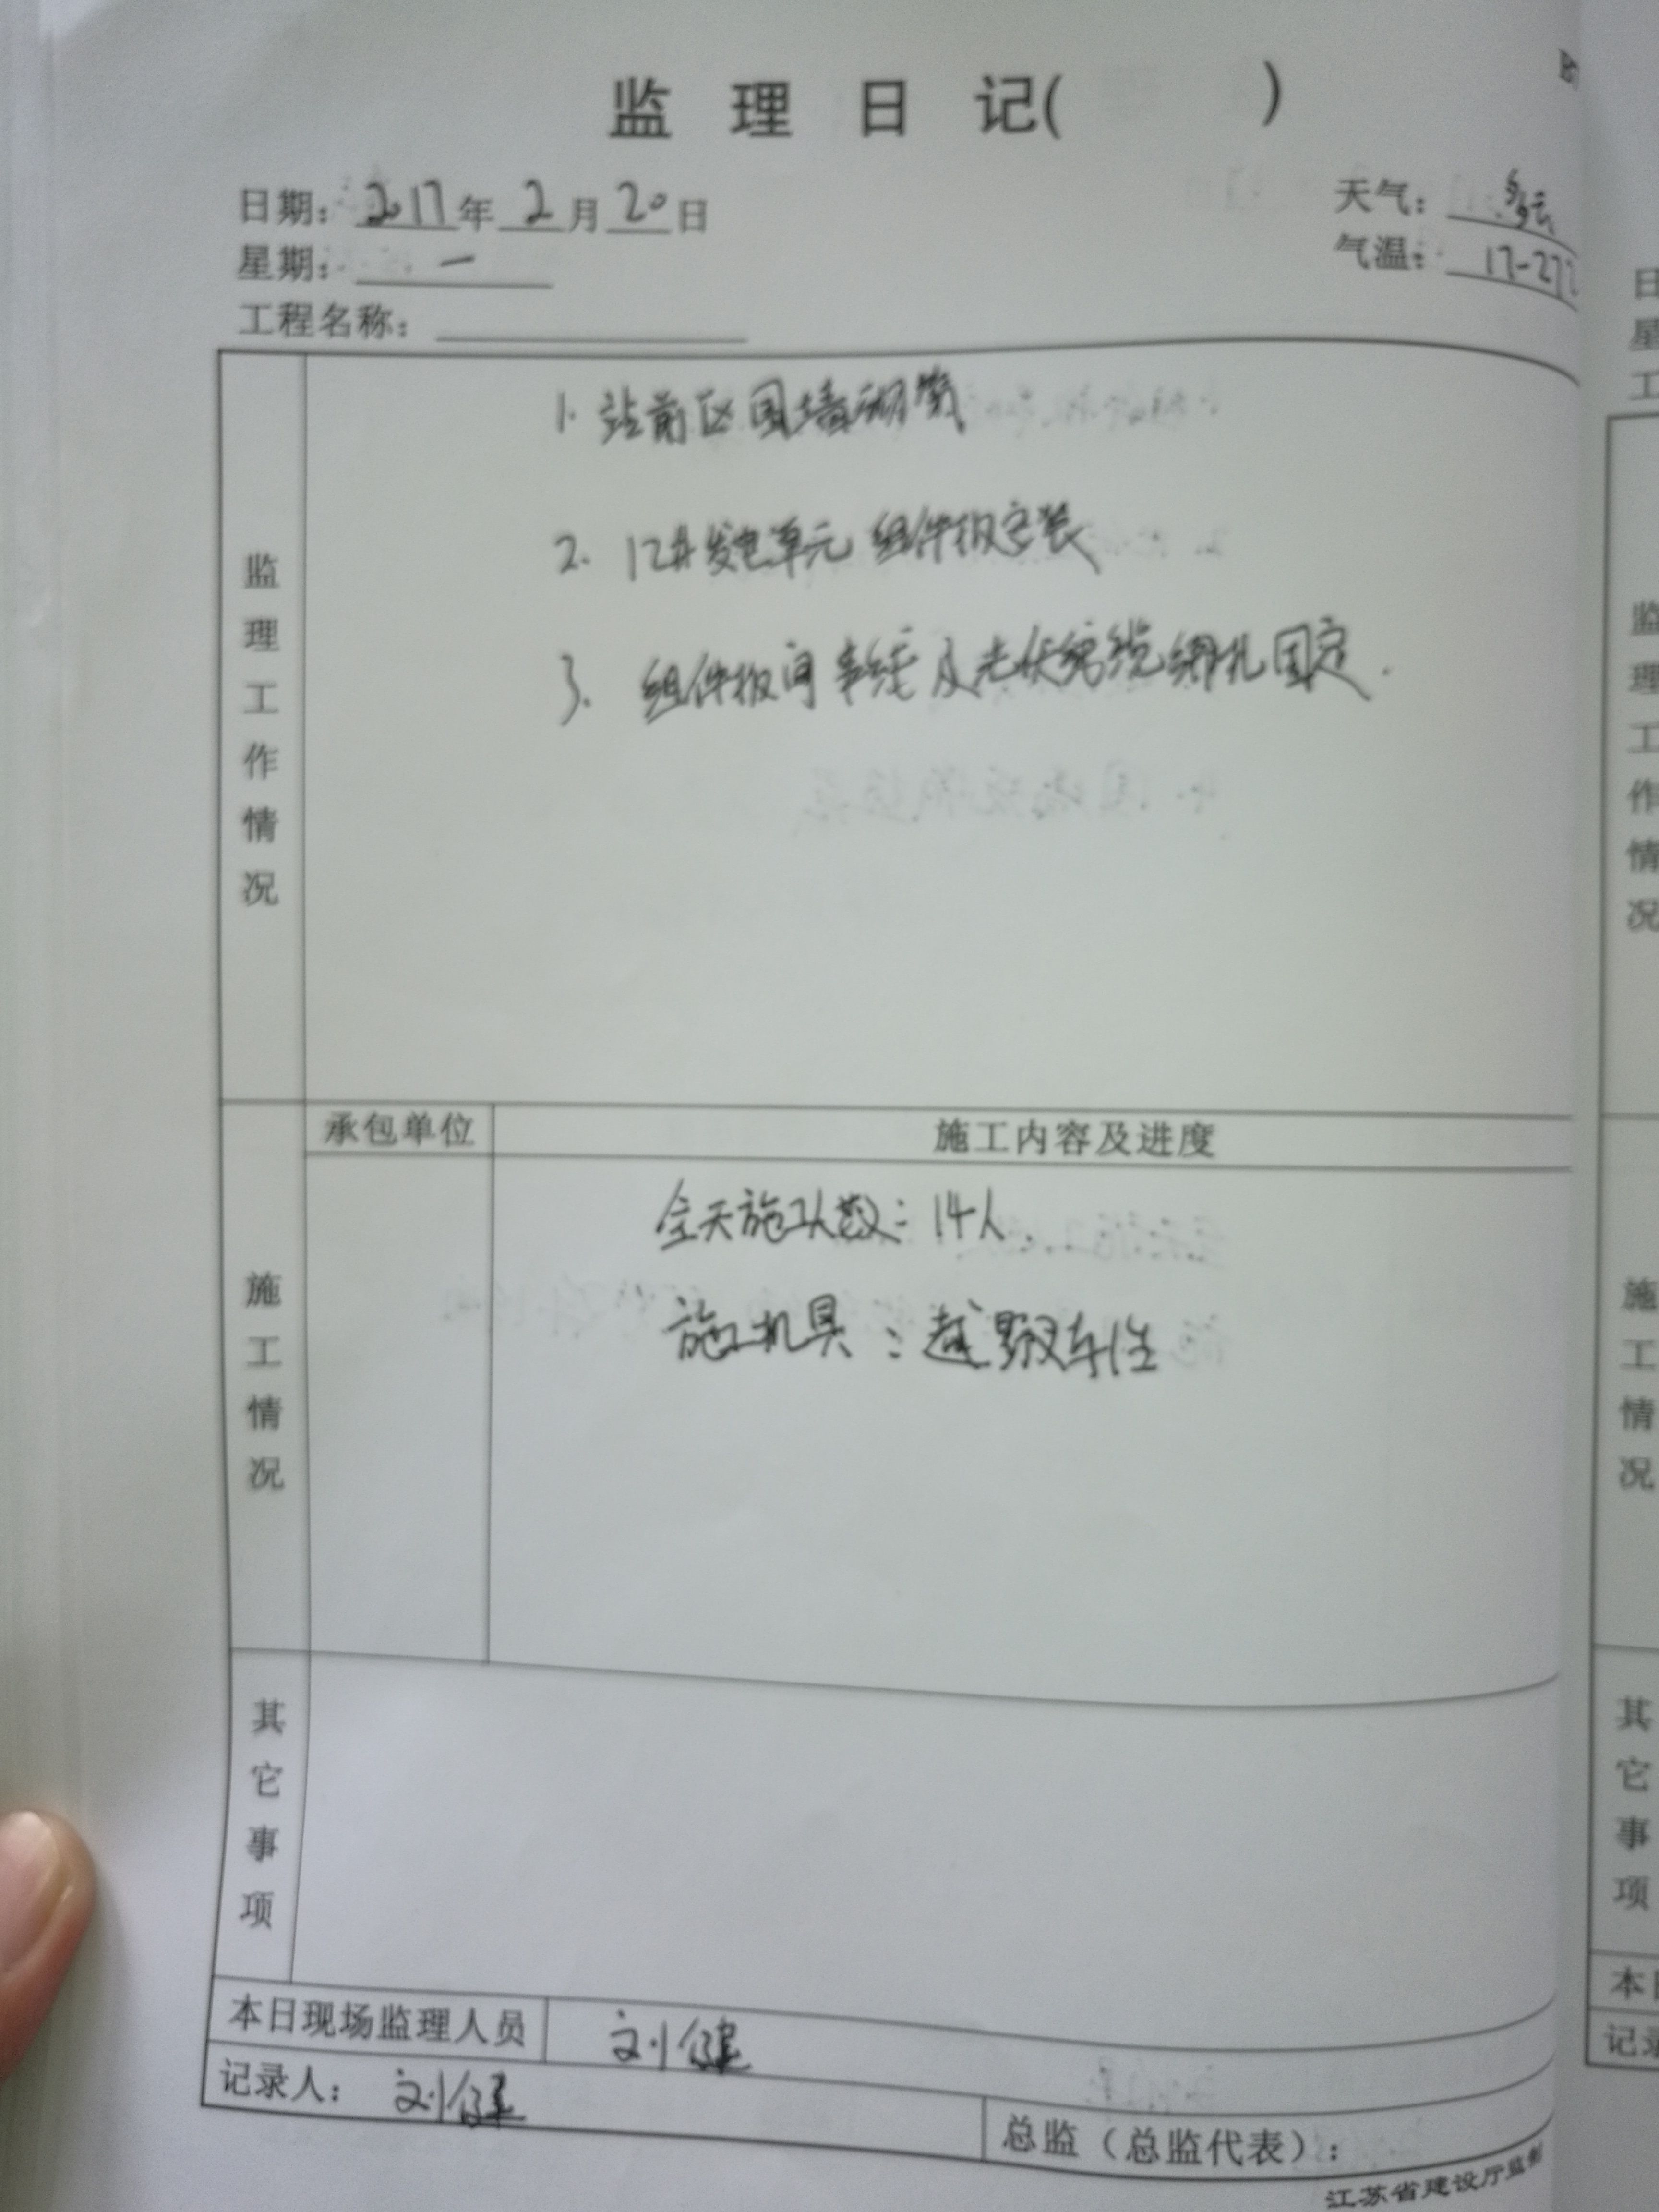 监理日记( )
日期：2017年2月20日
天气：多云
星期：一
气温：17-27
工程名称：
监理工作情况
1. 站前区围墙砌筑
2. 12#发电单元组件板安装
3. 组件板间串线及光伏电缆绑扎固定.
承包单位
施工内容及进度
施工情况
全天施工人数：14人.
施工机具：越野叉车1台
其它事项
本日现场监理人员
刘健
记录人：刘健
总监（总监代表）：
江苏省建设厅监制